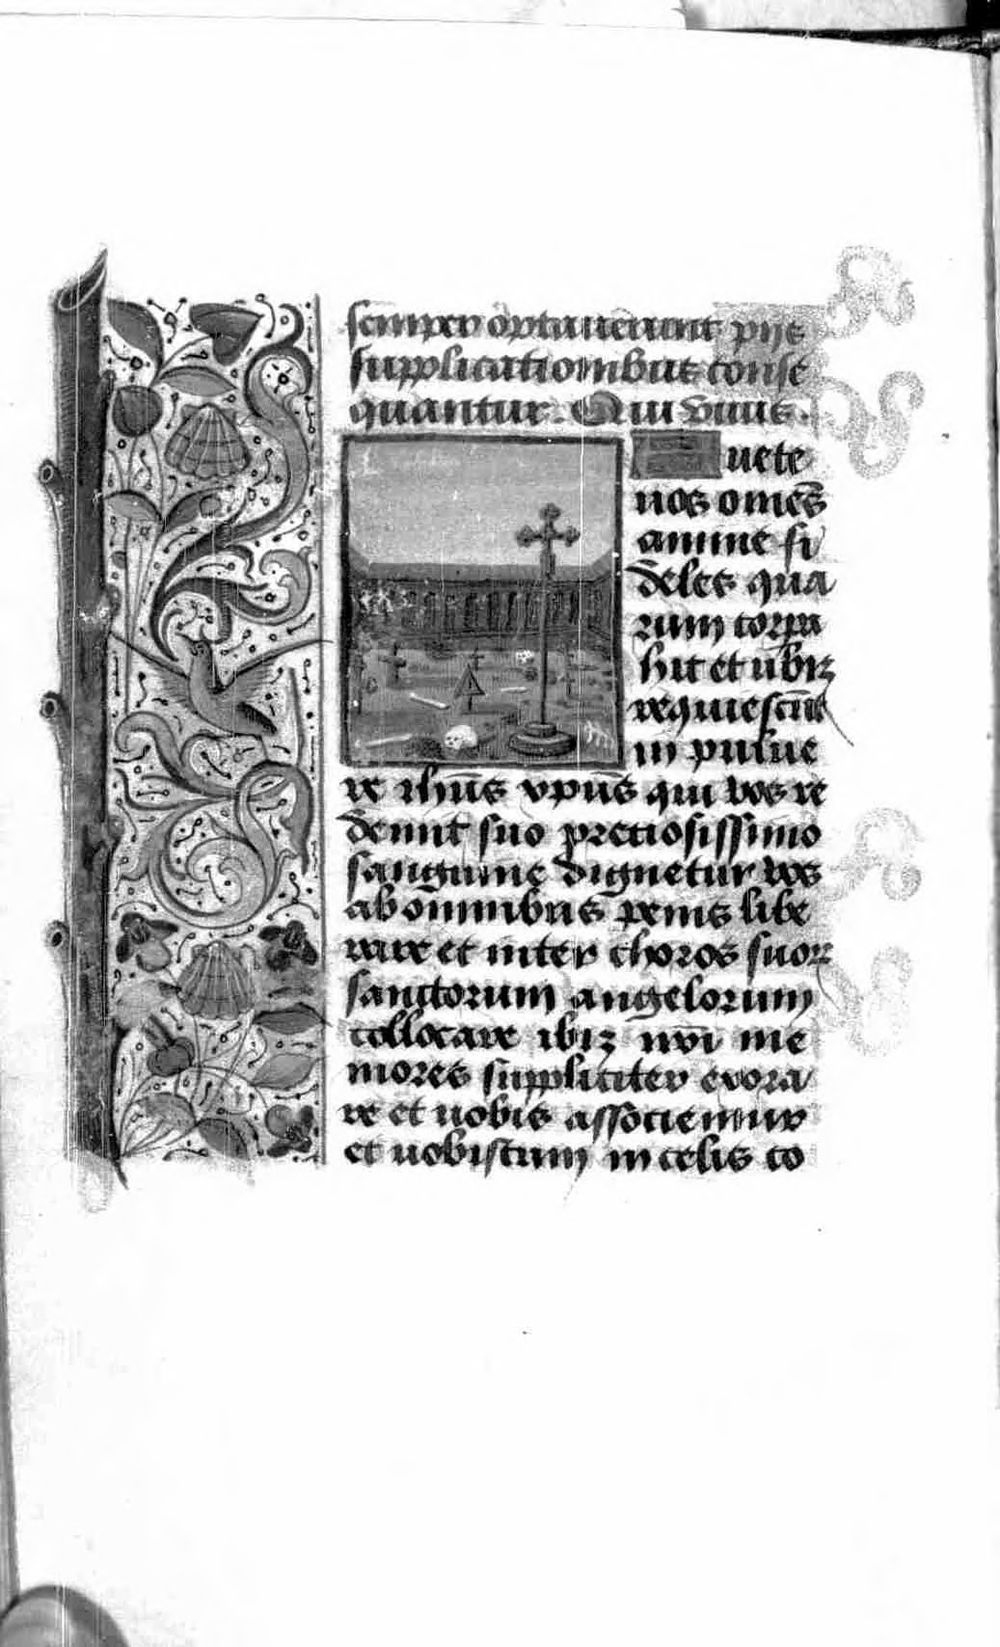 semper optauerunt pijs
supplicationibus conse
quantur. Qui viuis.
Auete
nos om̅es
anime fi
deles qua
rum corpa
hic et ubiꝫ
requiescūt
in pulue
re ihūs xpūs qui vos re
demit suo preciosissimo
sanguine dignetur vos
ab omnibus penis libe
rare et inter choros suoꝝ
sanctorum angelorum
collocare ibiꝫ nr̄i me
mores suppliciter exora
re et uobis associemur
et uobiscum in celis co